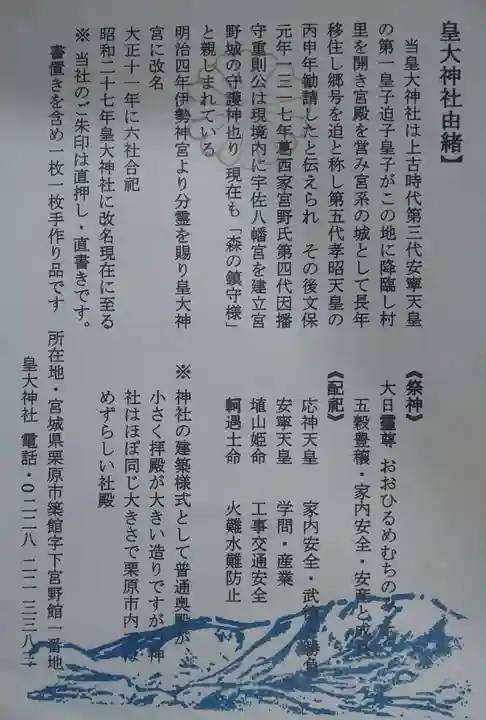 皇大神社由緒】
当皇大神社は上古時代第三代安寧天皇
の第一皇子迫子皇子がこの地に降臨し村
里を開き宮殿を営み宮系の城として長年
移住し郷号を迫と称し第五代孝昭天皇の
丙申年勧請したと伝えられ その後文保
元年一三一七年葛西家宮野氏第四代因播
守重則公は現境内に宇佐八幡宮を建立宮
野城の守護神也り 現在も「森の鎮守様」
と親しまれている
明治四年伊勢神宮より分霊を賜り皇大神
宮に改名
大正十一年に六社合祀
昭和二十七年皇大神社に改名現在に至る
※ 当社のご朱印は直押し・直書きです。
書置きを含め一枚一枚手作り品です
《祭神》
大日孁尊 おおひるめむちの
五穀豊穣・家内安全・安産と成
《配祀》
応神天皇 家内安全・武 勝負
安寧天皇 学問・産業
埴山姫命 工事交通安全
軻遇土命 火難水難防止
※ 神社の建築様式として普通奥殿が
小さく拝殿が大きい造りですが 神
社はほぼ同じ大きさで栗原市内では
めずらしい社殿
所在地・宮城県栗原市築館字下宮野館一番地
皇大神社 電話・〇二二八 二二 三三八三